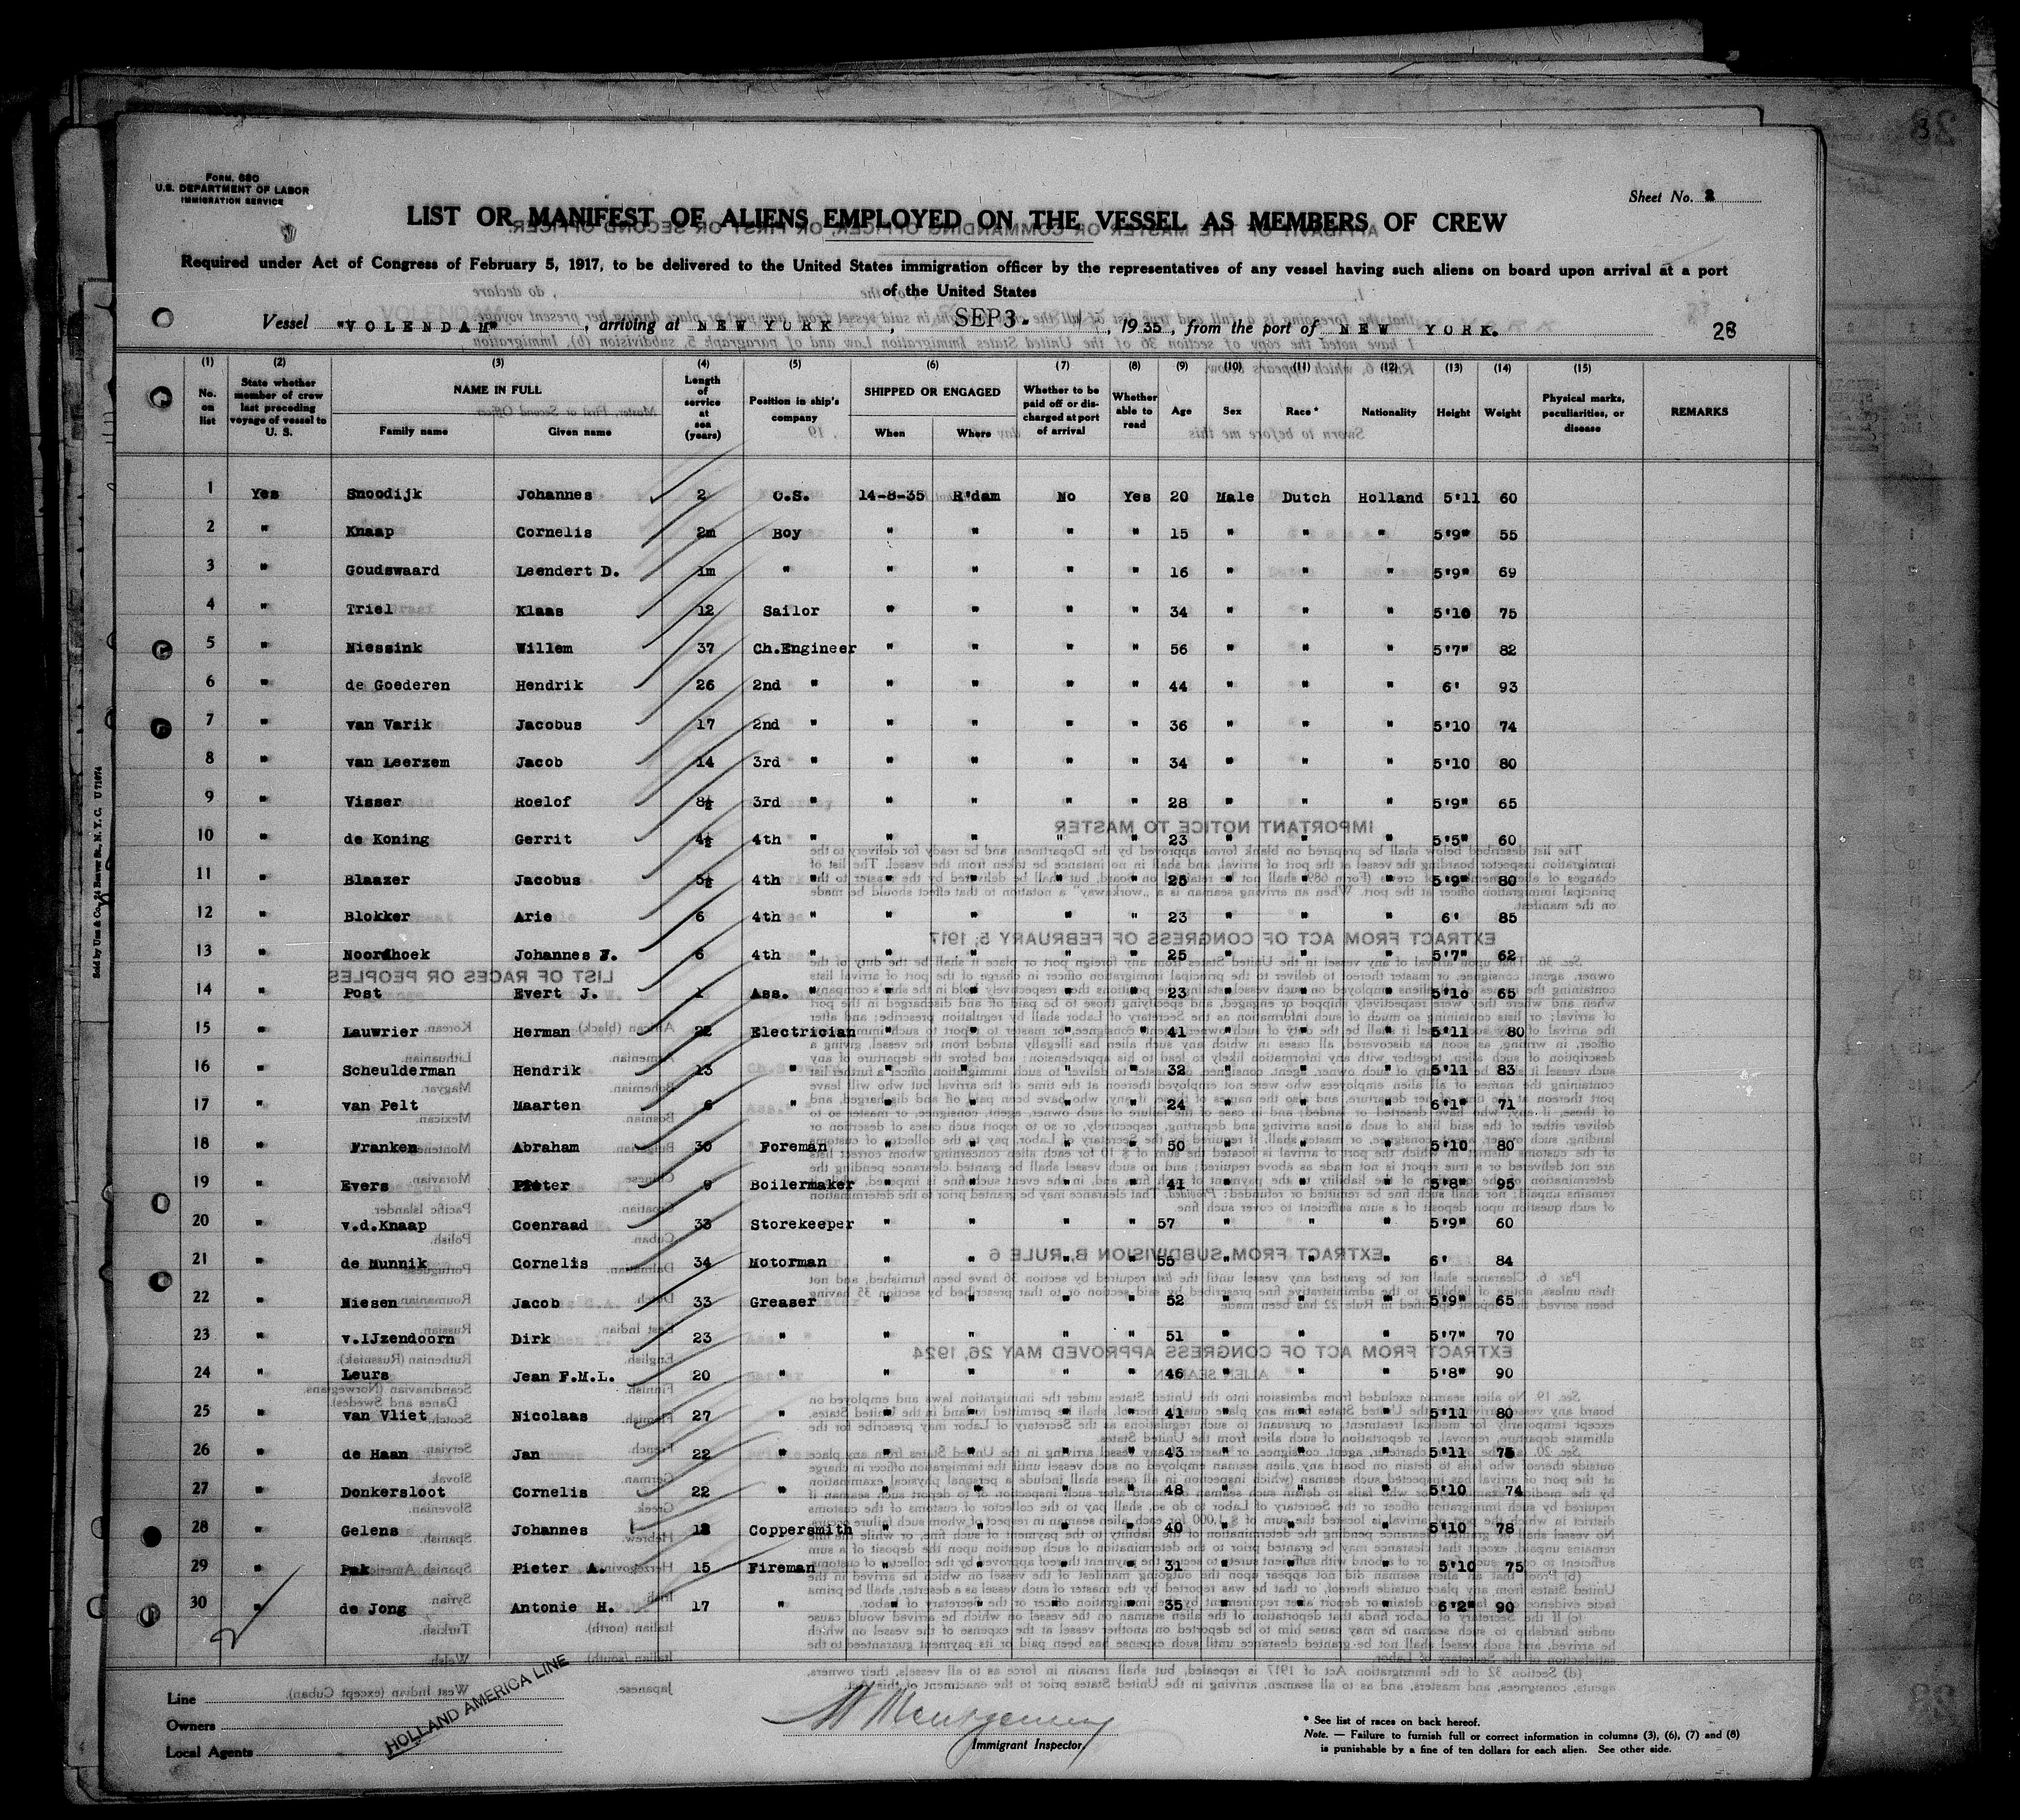 Form. 680
U.S. DEPARTMENT OF LABOR
IMMIGRATION SERVICE
Sheet No. 2
LIST OR MANIFEST OF ALIENS EMPLOYED ON THE VESSEL AS MEMBERS OF CREW
Required under Act of Congress of February 5, 1917, to be delivered to the United States immigration officer by the representatives of any vessel having such aliens on board upon arrival at a port
of the United States
Vessel "VOLENDAM", arriving at NEW YORK, SEP 3 - , 1935, from the port of NEW YORK. 28
(1) (2) (3) (4) (5) (6) (7) (8) (9) (10) (11) (12) (13) (14) (15)
No. on list | State whether member of crew last preceding voyage of vessel to U. S. | NAME IN FULL Family name Given name | Length of service at sea (years) | Position in ship's company | SHIPPED OR ENGAGED When Where | Whether to be paid off or discharged at port of arrival | Whether able to read | Age | Sex | Race* | Nationality | Height | Weight | Physical marks, peculiarities, or disease | REMARKS
1 Yes Snoodijk Johannes 2 O.S. 14-8-35 R'dam No Yes 20 Male Dutch Holland 5'11 60
2 " Knaap Cornelis 2m Boy " " " " 15 " " " 5'9" 55
3 " Goudswaard Leendert D. 1m " " " " " 16 " " " 5'9" 69
4 " Triel Klaas 12 Sailor " " " " 34 " " " 5'10 75
5 " Niessink Willem 37 Ch.Engineer " " " " 56 " " " 5'7" 82
6 " de Goederen Hendrik 26 2nd " " " " " 44 " " " 6' 93
7 " van Varik Jacobus 17 2nd " " " " " 36 " " " 5'10 74
8 " van Leerzem Jacob 14 3rd " " " " " 34 " " " 5'10 80
9 " Visser Roelof 8½ 3rd " " " " " 28 " " " 5'9" 65
10 " de Koning Gerrit 4½ 4th " " " " " 23 " " " 5'5" 60
11 " Blaazer Jacobus 5½ 4th " " " " " 25 " " " 5'9" 80
12 " Blokker Arie 6 4th " " " " " 23 " " " 6' 85
13 " Noordhoek Johannes F. 6 4th " " " " " 25 " " " 5'7" 62
14 " Post Evert J. 1 Ass. " " " " " 23 " " " 5'10 65
15 " Lauwrier Herman 22 Electrician " " " " 41 " " " 5'11 80
16 " Scheulderman Hendrik 13 " " " " " 32 " " " 5'11 83
17 " van Pelt Maarten 6 " " " " " 24 " " " 6'1" 71
18 " Franken Abraham 30 Foreman " " " " 50 " " " 5'10 80
19 " Evers Pieter 9 Boilermaker " " " " 41 " " " 5'8" 95
20 " v.d.Knaap Coenraad 33 Storekeeper " " " " 57 " " " 5'9" 60
21 " de Munnik Cornelis 34 Motorman " " " " 55 " " " 6' 84
22 " Niesen Jacob 33 Greaser " " " " 52 " " " 5'9" 65
23 " v.IJzendoorn Dirk 23 " " " " " 51 " " " 5'7" 70
24 " Leurs Jean F.M.L. 20 " " " " " 46 " " " 5'8" 90
25 " van Vliet Nicolaas 27 " " " " " 41 " " " 5'11 80
26 " de Haan Jan 22 " " " " " 43 " " " 5'11 75
27 " Donkersloot Cornelis 22 " " " " " 48 " " " 5'10 74
28 " Gelens Johannes Coppersmith " " " " 40 " " " 5'10 78
29 " Pak Pieter A. 15 Fireman " " " " 31 " " " 5'10 75
30 " de Jong Antonie H. 17 " " " " " 35 " " " 6'2" 90
Line
Owners
Local Agents
HOLLAND AMERICA LINE
Montgomery
Immigrant Inspector
* See list of races on back hereof.
Note. — Failure to furnish full or correct information in columns (3), (6), (7) and (8)
is punishable by a fine of ten dollars for each alien. See other side.
Sold by Unz & Co., 24 Beaver St., N. Y. C.